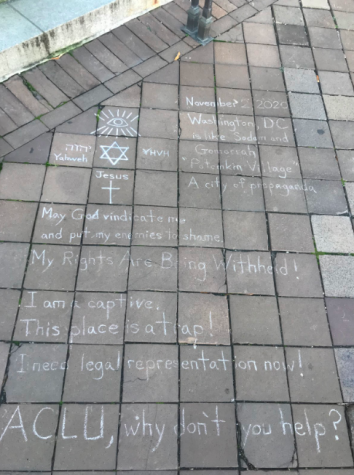 November 2, 2020
Washington, DC
is like Sodom and
Gomorrah
"Potemkin Village"
A city of propaganda
יהוה
Yahweh
YHVH
Jesus
May God vindicate me
and put my enemies to shame.
My Rights Are Being Withheld!
I am a captive.
This place is a trap!
I need legal representation now!
ACLU, why don't you help?